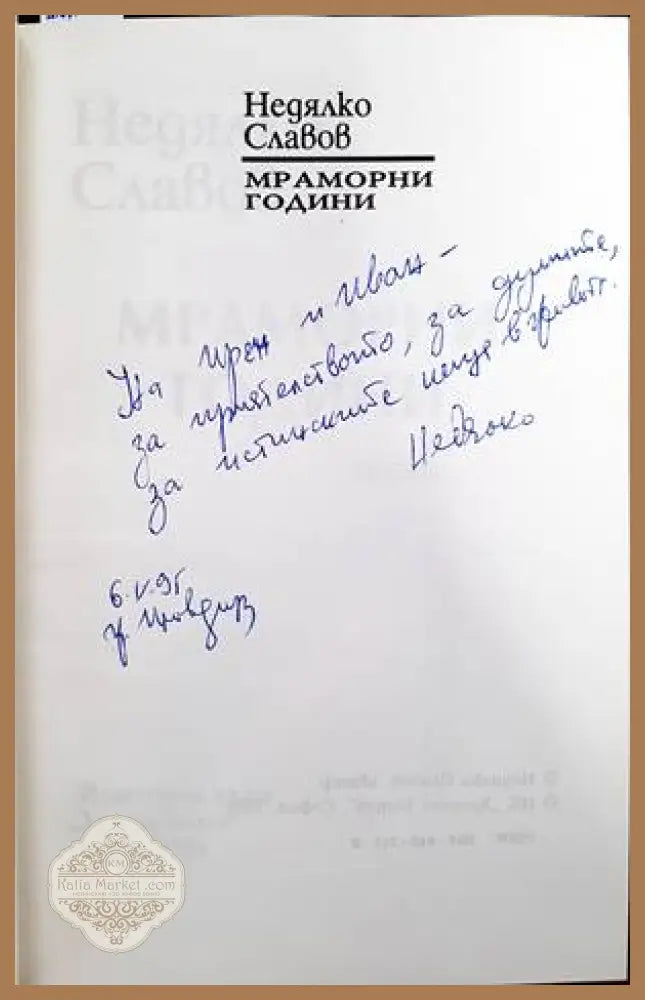 Недялко
Славов
МРАМОРНИ
ГОДИНИ
На Ирен и Иван –
за приятелството, за думите,
за истинските неща в живота.
Недялко
6.V.95
гр. Пловдив
KM
Katia Market .com